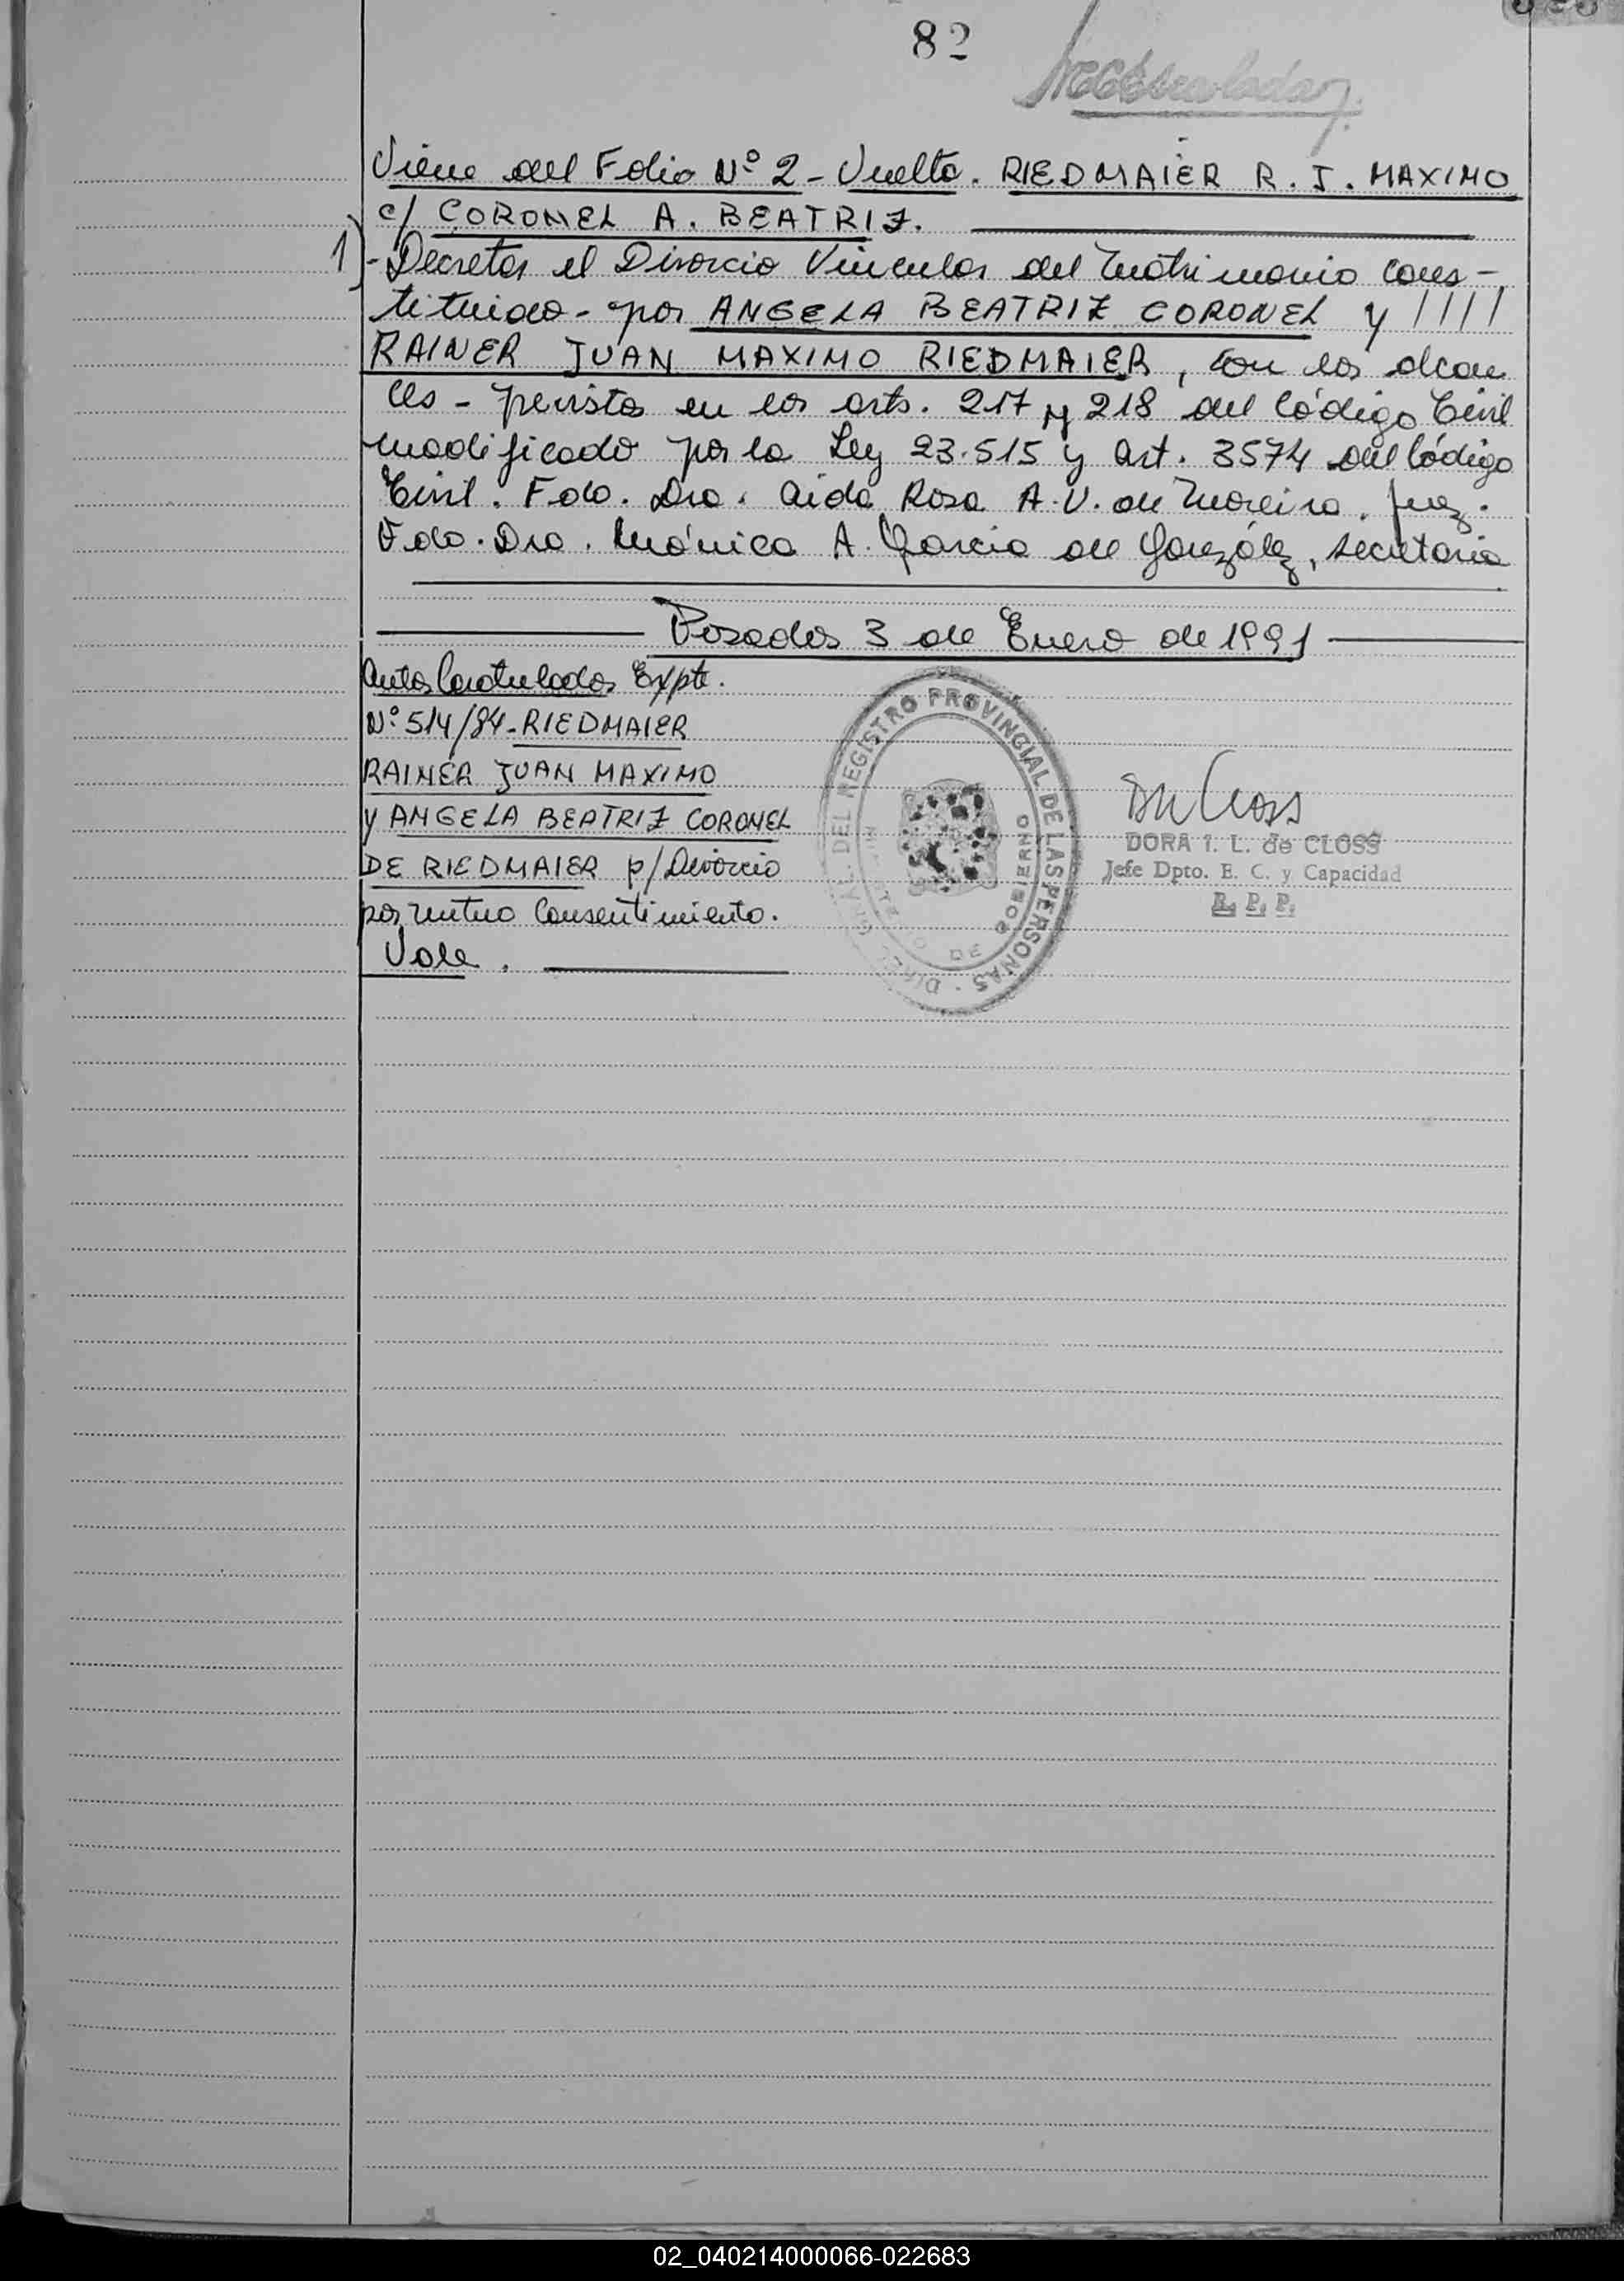 82
Viene del Folio Nº 2 - Vuelta. RIEDMAIER R. J. MAXIMO
c/ CORONEL A. BEATRIZ.
1) - Decretar el Divorcio Vincular del Matrimonio cons-
tituido - por ANGELA BEATRIZ CORONEL y ////
RAINER JUAN MAXIMO RIEDMAIER, con los alcan
ces - previstos en los arts. 217 y 218 del Código Civil
modificado por la Ley 23.515 y art. 3574 del Código
Civil. Fdo. Dra. Aida Rosa A. V. de Moreira. Juez.
Fdo. Dra. Mónica A. García de González, secretaria
Posadas 3 de Enero de 1991
Autos Caratulados Expte.
Nº 514/84 - RIEDMAIER
RAINER JUAN MAXIMO
y ANGELA BEATRIZ CORONEL
DE RIEDMAIER p/ Divorcio
por mutuo Consentimiento.
Vale.
DEL REGISTRO PROVINCIAL DE LAS PERSONAS
DORA I. L. de CLOSS
Jefe Dpto. E. C. y Capacidad
R. P. P.
02_040214000066-022683